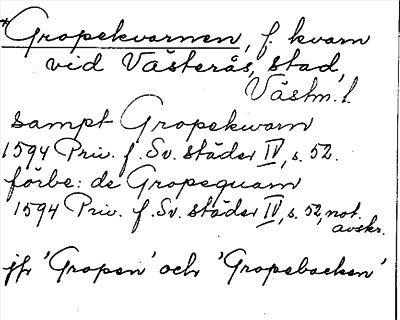 *Gropekvarnen, f. kvarn
vid Västerås, stad,
Västm. l.
sampt Gropekwarn
1594 Priv. f. Sv. städer IV, s. 52.
förbe: de Gropequarn
1594 Priv. f. Sv. städer IV, s. 52, not.
avskr.
jfr 'Gropen' och 'Gropebacken'